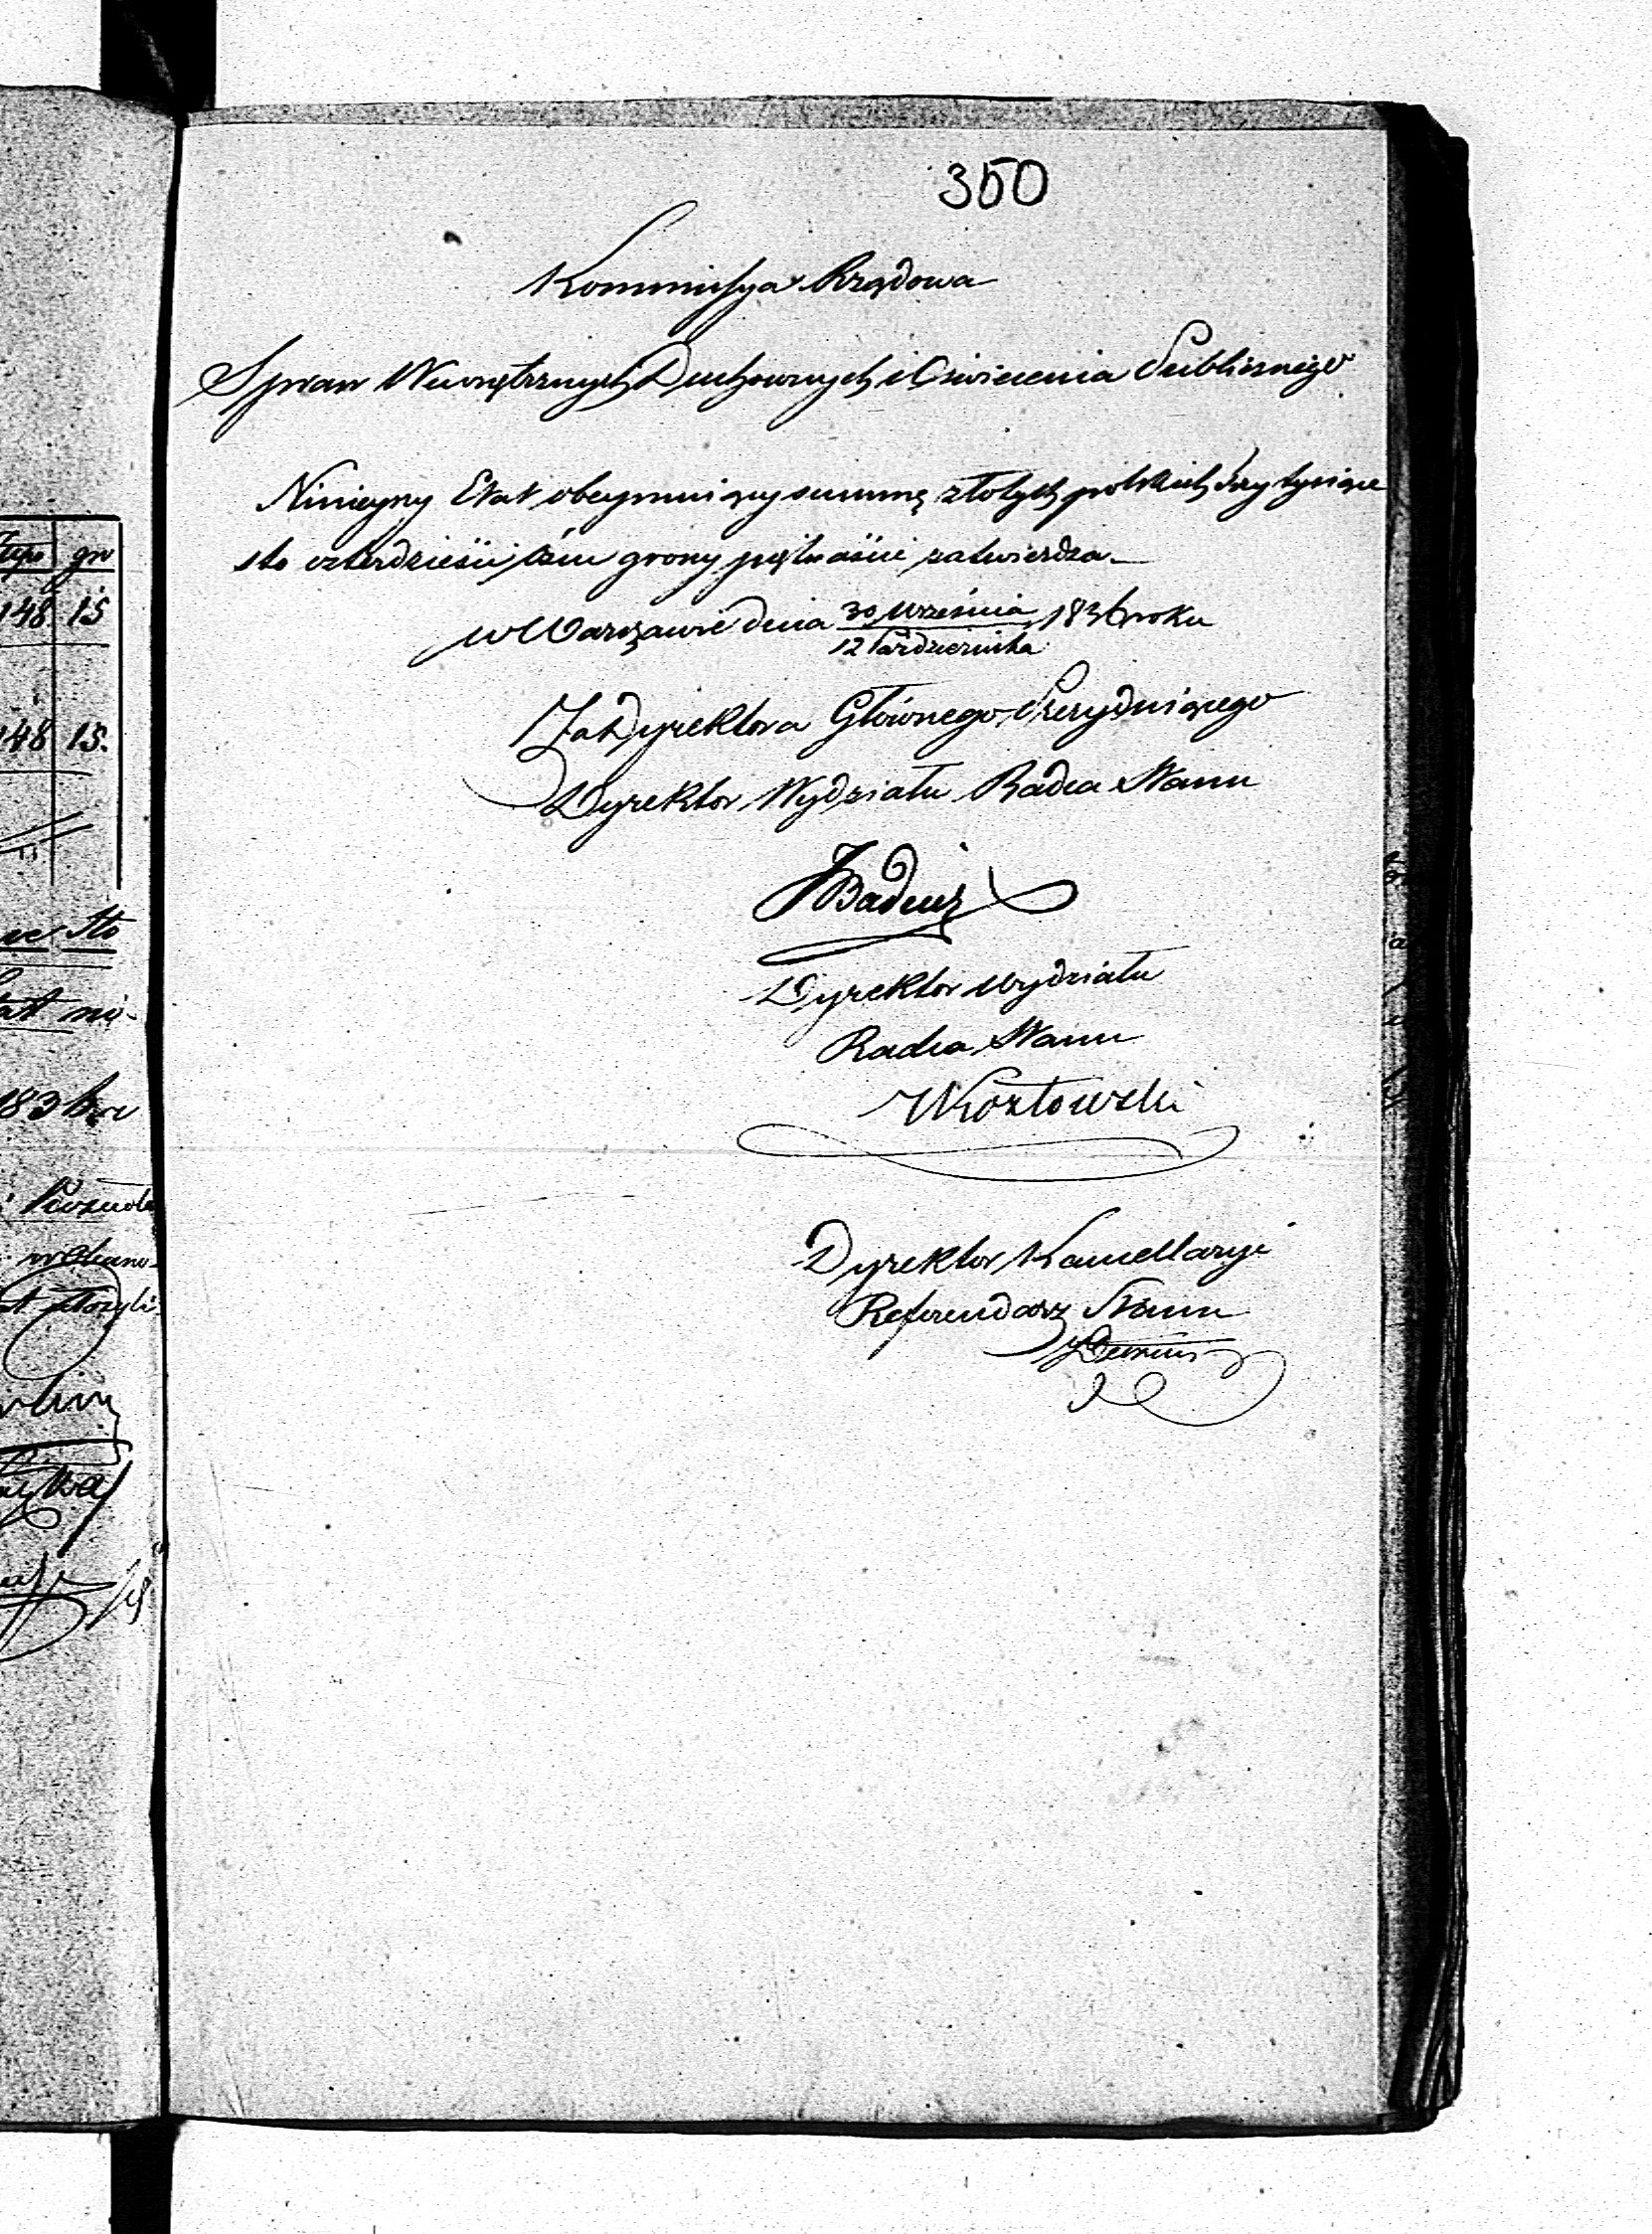 350
Kommissya Rządowa
Spraw Wewnętrznych Duchownych i Oświecenia Publicznego
Ninieyszy Etat obeymuiący summę złotych polskich trzy tysiące
sto czterdzieści ośm groszy piętnaście zatwierdza.
w Warszawie dnia 30 Września / 12 Października 1836 roku
Za Dyrektora Głównego Prezyduiącego
Dyrektor Wydziału Radca Stanu
Dyrektor Wydziału
Radca Stanu
Kozłowski
Dyrektor Kancellaryi
Referendarz Stanu
gr
148 15
148 15.
sto